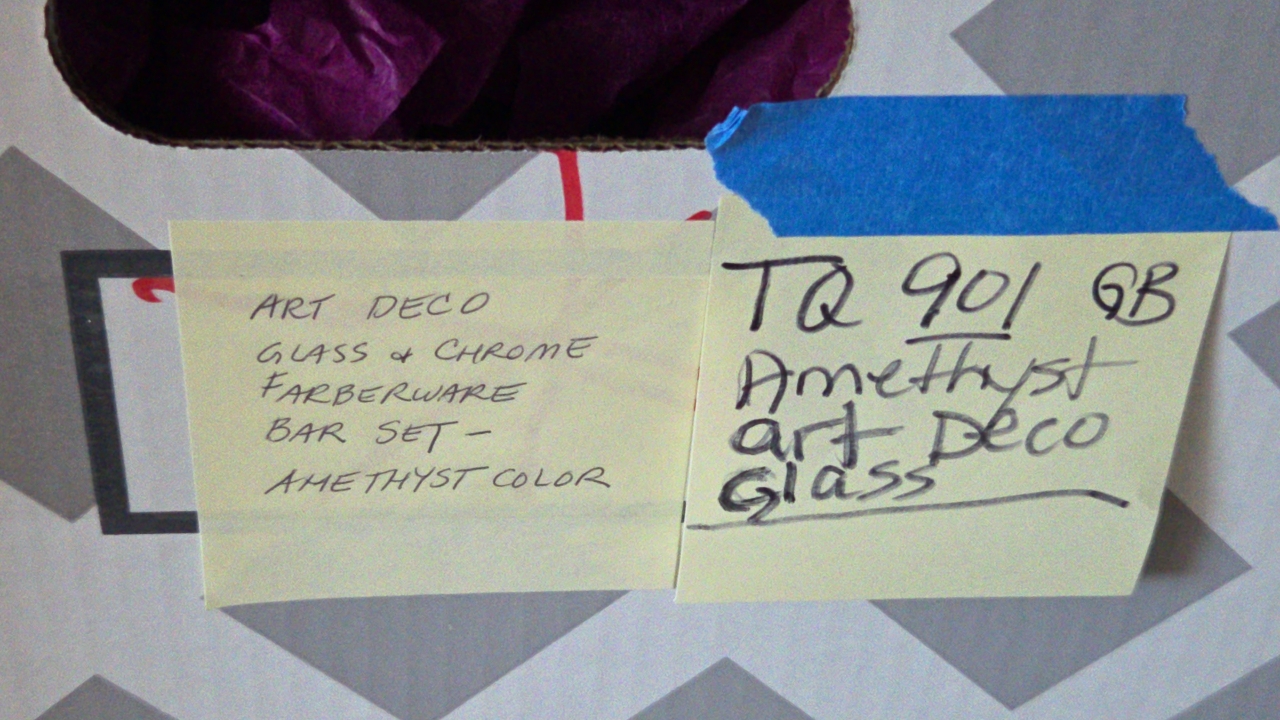 ART DECO
GLASS & CHROME
FARBERWARE
BAR SET -
AMETHYST COLOR
TQ 901 GB
Amethyst
art Deco
Glass